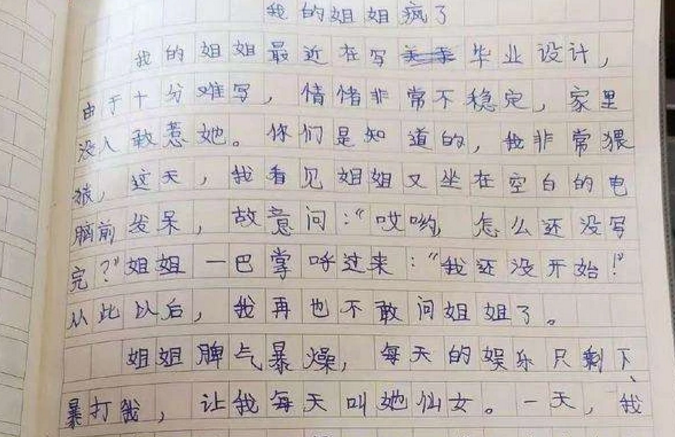 我的姐姐疯了
我的姐姐最近在写毕业设计，
由于十分难写，情绪非常不稳定，家里
没人敢惹她。你们是知道的，我非常猥
琐，这天，我看见姐姐又坐在空白的电
脑前发呆，故意问：“哎哟，怎么还没写
完？”姐姐一巴掌呼过来：“我还没开始！”
从此以后，我再也不敢问姐姐了。
姐姐脾气暴燥，每天的娱乐只剩下
暴打我，让我每天叫她仙女。一天，我